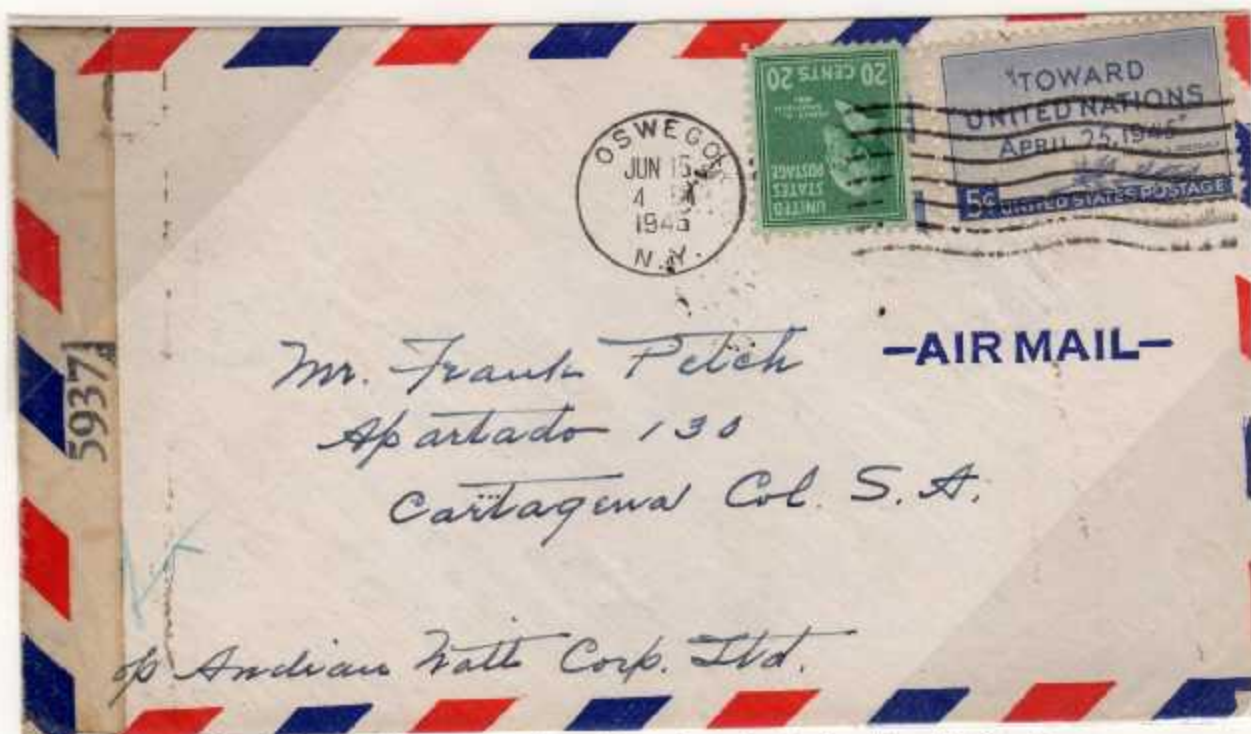 OSWEGO
JUN 15
4 PM
1945
N.Y.
20 CENTS 20
UNITED
STATES
POSTAGE
"TOWARD
UNITED NATIONS
APRIL 25, 1945"
5¢ UNITED STATES POSTAGE
-AIR MAIL-
Mr. Frank Petch
Apartado 130
Cartagena Col. S. A.
5937
Andian Natl Corp. Ltd.